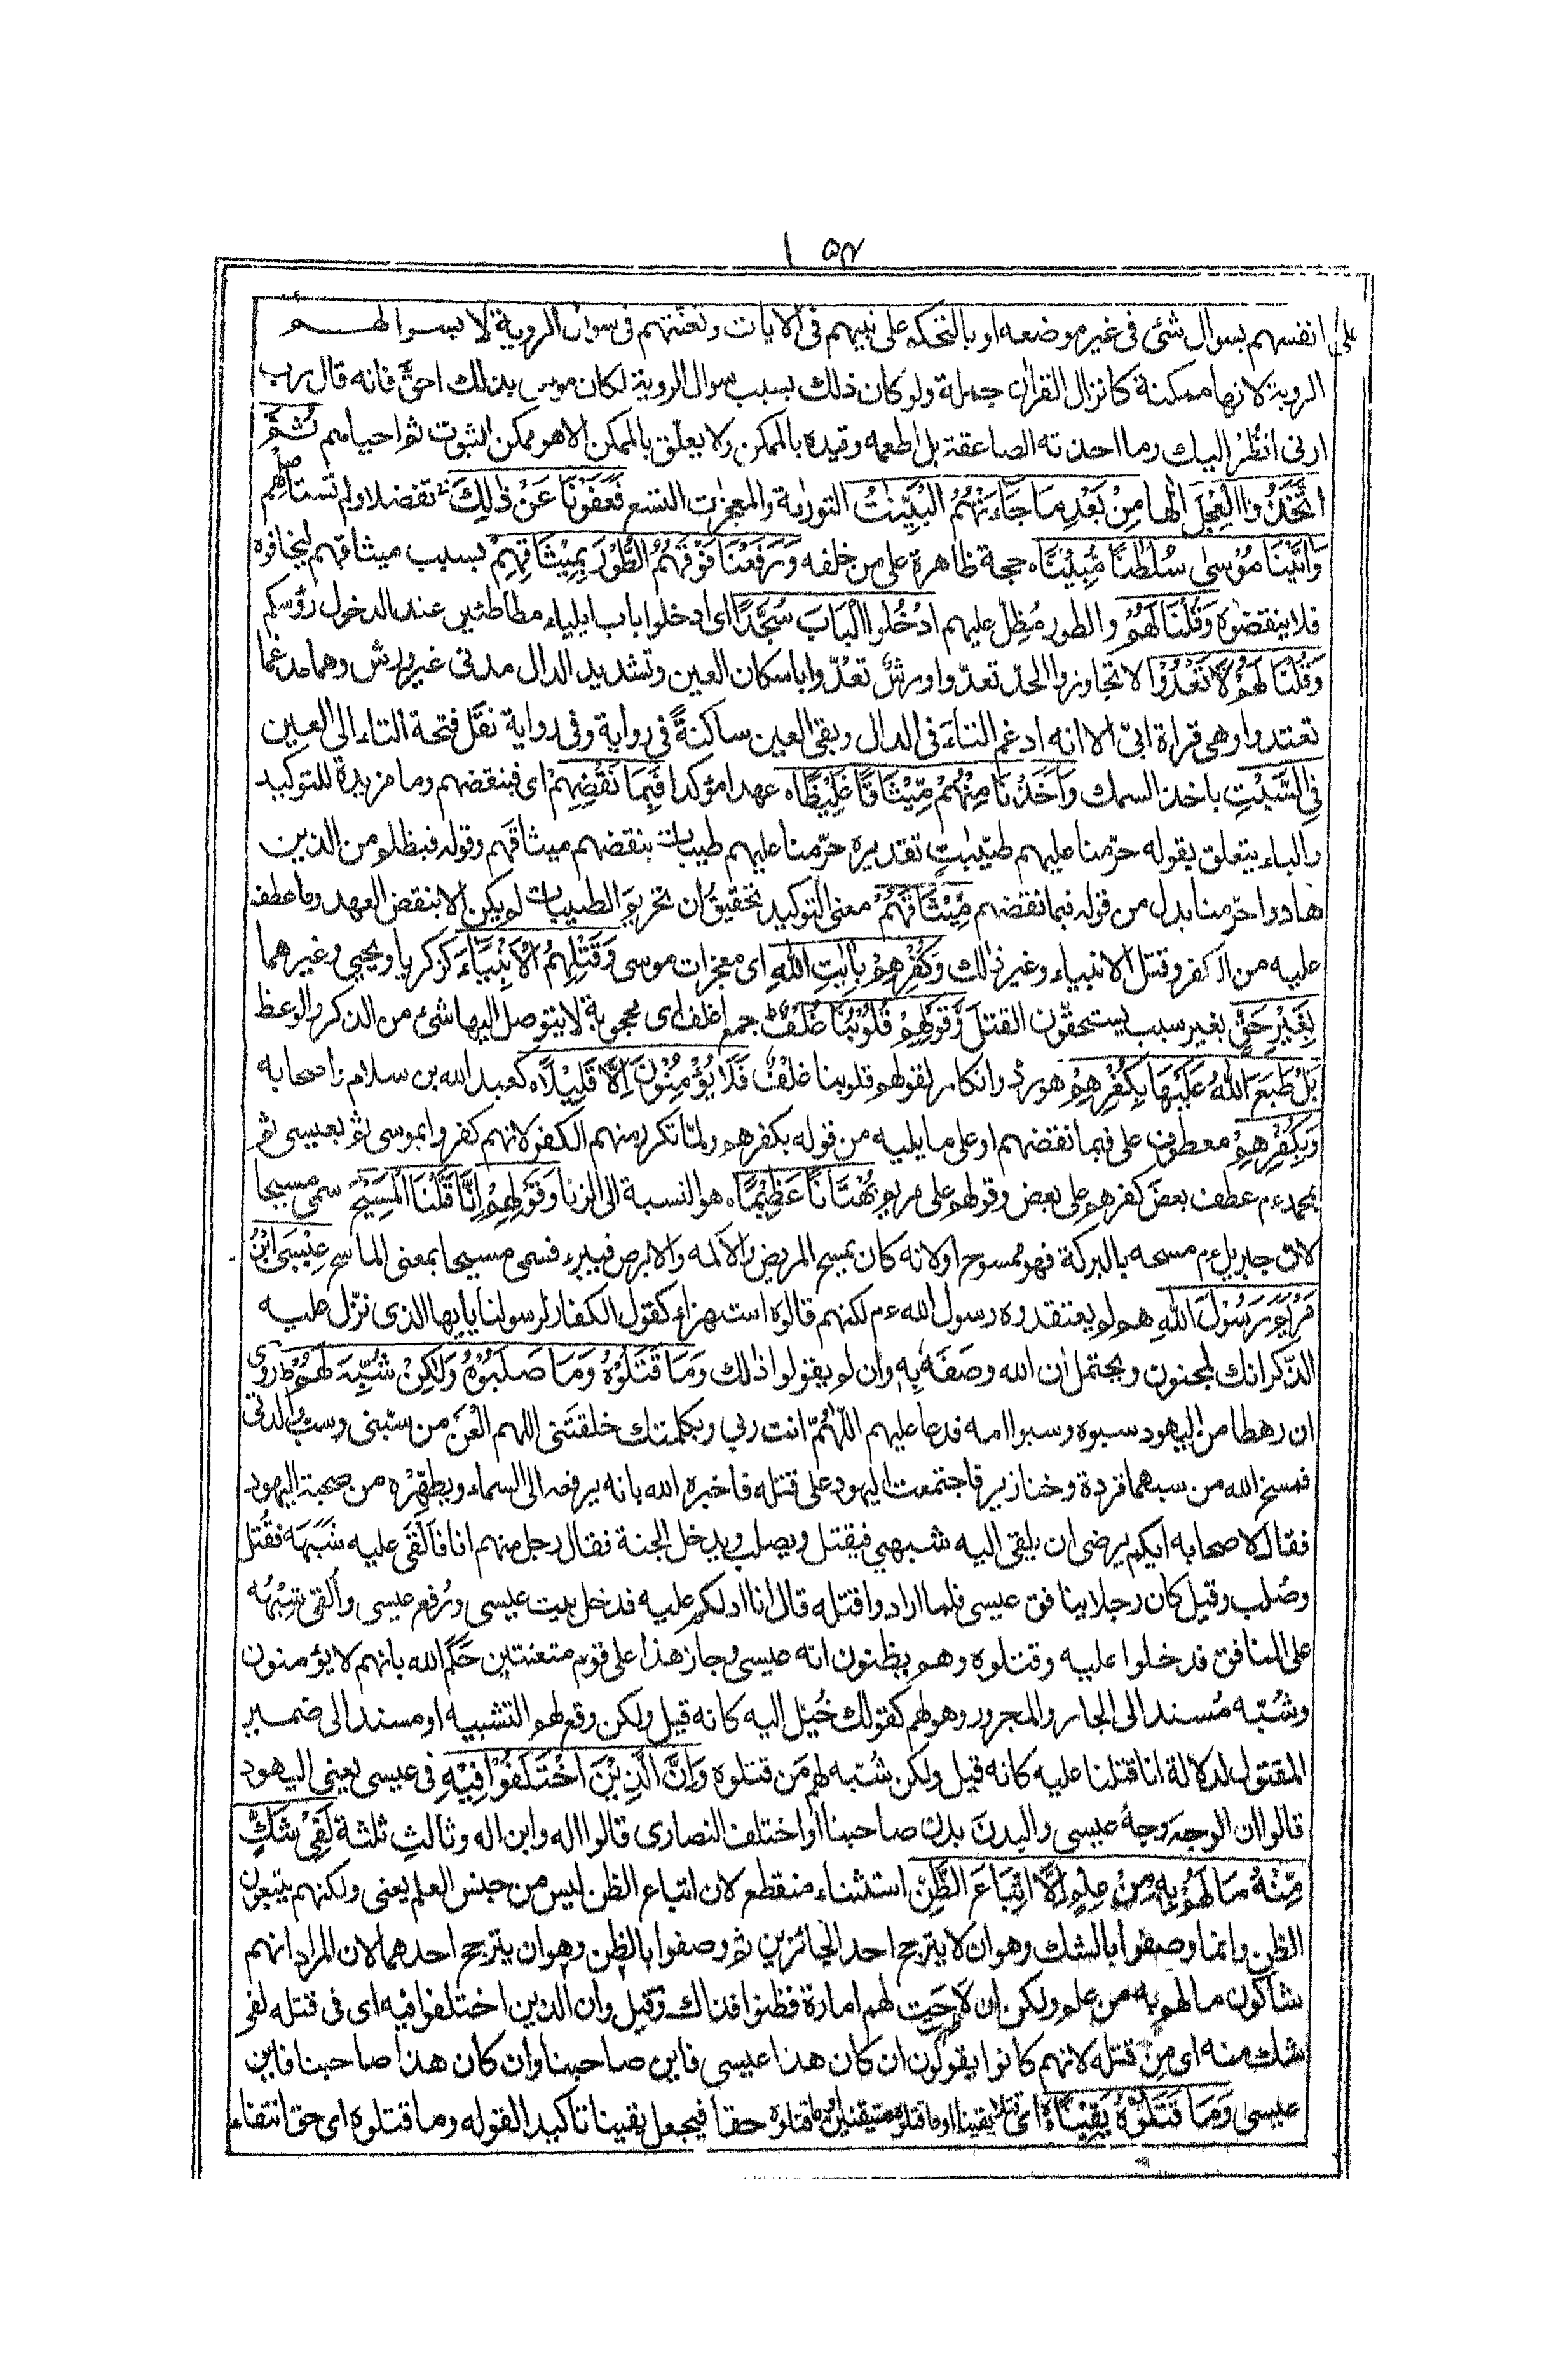 على انفسهم بسوال شئ في غير موضعه او بالتحكم على نبيهم في الايات وتعنتهم في سوال الروية لا بسوالهم
الروية لانها ممكنة كانزال القران جملة ولو كان ذلك بسبب سوال الروية لكان موسى بذلك احق فانه قال رب
ارنى انظر اليك وما اخذته الصاعقة بل اطعمه وقيده بالممكن ولا يعلق بالممكن الا هو ممكن الثبوت ثم احياهم ثُمَّ
اتَّخَذُوا الْعِجْلَ الها مِنْ بَعْدِ مَا جَاءَتْهُمُ الْبَيِّنٰتُ التورية والمعجزت التسع فَعَفَوْنَا عَنْ ذٰلِكَ تفضلا ولم نستاصلهم
وَاٰتَيْنَا مُوْسٰى سُلْطٰنًا مُّبِيْنًا ه حجة ظاهرة على من خلفه وَرَفَعْنَا فَوْقَهُمُ الطُّوْرَ بِمِيْثَاقِهِمْ بسبب ميثاقهم ليخافوه
فلا ينقضوه وَقُلْنَا لَهُمُ والطور مُظِلٌّ عليهم ادْخُلُوا الْبَابَ سُجَّدًا اى ادخلوا باب ايلياء مطاطئين عند الدخول رؤسكم
وَقُلْنَا لَهُمْ لَا تَعْدُوْا لا تجاوزوا الحد تعدّوا ورش تعْدّوا باسكان العين وتشديد الدال مدنى غير ورش وهما مدغما
تعتدوا وهى قراءة ابىّ الا انه ادغم التاء في الدال وبقى العين ساكنةً في رواية وفى رواية نقل فتحة التاء الى العين
فِى السَّبْتِ باخذ السمك وَاَخَذْنَا مِنْهُمْ مِّيْثَاقًا غَلِيْظًا ه عهدا مؤكدا فَبِمَا نَقْضِهِمْ اى فبنقضهم وما مزيدة للتوكيد
والباء يتعلق بقوله حرّمنا عليهم طيّبٰت تقديره حرّمنا عليهم طيبات بنقضهم ميثاقهم وقوله فبظلم من الذين
هادوا حرّمنا بدل من قوله فبما نقضهم مِّيْثَاقَهُمْ معنى التوكيد تحقيق ان تحريم الطيبات لم يكن الا بنقض العهد وما عطف
عليه من الكفر وقتل الانبياء وغير ذلك وَكُفْرِهِمْ بِاٰيٰتِ اللّٰهِ اى معجزات موسى وَقَتْلِهِمُ الْاَنْبِيَاءَ كزكريا ويحيى وغيرهما
بِغَيْرِ حَقٍّ بغير سبب يستحقّون القتل وَّقَوْلِهِمْ قُلُوْبُنَا غُلْفٌ ط جمع اغلف اى محجوبة لا يتوصل اليها شئ من الذكر والوعظ
بَلْ طَبَعَ اللّٰهُ عَلَيْهَا بِكُفْرِهِمْ هو رد وانكار لقولهم قلوبنا غلف فَلَا يُؤْمِنُوْنَ اِلَّا قَلِيْلًا ه كعبد الله بن سلام واصحابه
وَبِكُفْرِهِمْ معطوف على فبما نقضهم او على ما يليه من قوله بكفرهم ولمّا تكرر منهم الكفر لانهم كفروا بموسى ثم بعيسى ثم
بمحمد ع م عطف بعض كفرهم على بعض وقولهم على مريم بُهْتَانًا عَظِيْمًا ه هو النسبة الى الزنا وَقَوْلِهِمْ اِنَّا قَتَلْنَا الْمَسِيْحَ سمى مسيحا
لان جبريل ع م مسحه بالبركة فهو ممسوح او لانه كان يمسح المريض والاكمه والابرص فيبرء فسمى مسيحا بمعنى الماسح عِيْسَى ابْنَ
مَرْيَمَ رَسُوْلَ اللّٰهِ هم لم يعتقدوه رسول الله ع م لكنهم قالوه استهزاء كقول الكفار لرسولنا يايها الذى نزّل عليه
الذّكر انك لمجنون ويحتمل ان الله وصفه به وان لم يقولوا ذلك وَمَا قَتَلُوْهُ وَمَا صَلَبُوْهُ وَلٰكِنْ شُبِّهَ لَهُمْ ط روى
ان رهطا من اليهود سبوه وسبوا امه فدعا عليهم اللّٰهُمّ انت ربى وبكلمتك خلقتنى اللهم العَن من سبّنى وسب والدتى
فمسخ الله من سبهما قردة وخنازير فاجتمعت اليهود على قتله فاخبره الله بانه يرفعه الى السماء ويطهّره من صحبة اليهود
فقال لاصحابه ايكم يرضى ان يلقى اليه شبهى فيقتل ويصلب ويدخل الجنة فقال رجل منهم انا فالقى عليه شبهه فقُتل
وصُلب وقيل كان رجلا ينافق عيسى فلما ارادوا قتله قال انا ادلكم عليه فدخل بيت عيسى ورُفع عيسى والقى شبهُه
على المنافق فدخلوا عليه وقتلوه وهم يظنون انه عيسى وجاز هذا على قوم متعنتين حَكَم الله بانهم لا يؤمنون
وشُبّه مُسند الى الجار والمجرور وهو لهم كقولك خُيّل اليه كانه قيل ولكن وقع لهم التشبيه او مسند الى ضمير
المقتول لدلالة انا قتلنا عليه كانه قيل ولكن شُبّه لهم مَن قتلوه وَاِنَّ الَّذِيْنَ اخْتَلَفُوْا فِيْهِ فى عيسى يعنى اليهود
قالوا ان الوجه وجهُ عيسى والبدنَ بدن صاحبنا او اختلف النصارى قالوا اله وابن اله وثالثِ ثلثة لَفِىْ شَكٍّ
مِّنْهُ مَا لَهُمْ بِهٖ مِنْ عِلْمٍ اِلَّا اتِّبَاعَ الظَّنِّ استثناء منقطع لان اتباع الظن ليس من جنس العلم يعنى ولكنهم يتبعون
الظن وانما وصفوا بالشك وهو ان لا يترجح احد الجائزين ثم وصفوا بالظن وهو ان يترجح احدهما لان المراد انهم
شاكون ما لهم به من علم ولكن ان لاحت لهم امارة فظنوا فذاك وقيل وان الذين اختلفوا فيه اى فى قتله لفى
شك منه اى من قتله لانهم كانوا يقولون ان كان هذا عيسى فاين صاحبنا وان كان هذا صاحبنا فاين
عيسى وَمَا قَتَلُوْهُ يَقِيْنًا ه اى قتلا يقينا او ما قتلوه متيقنين او ما قتلوه حقا فيجعل يقينا تاكيدا لقوله وما قتلوه اى حق انتفاء